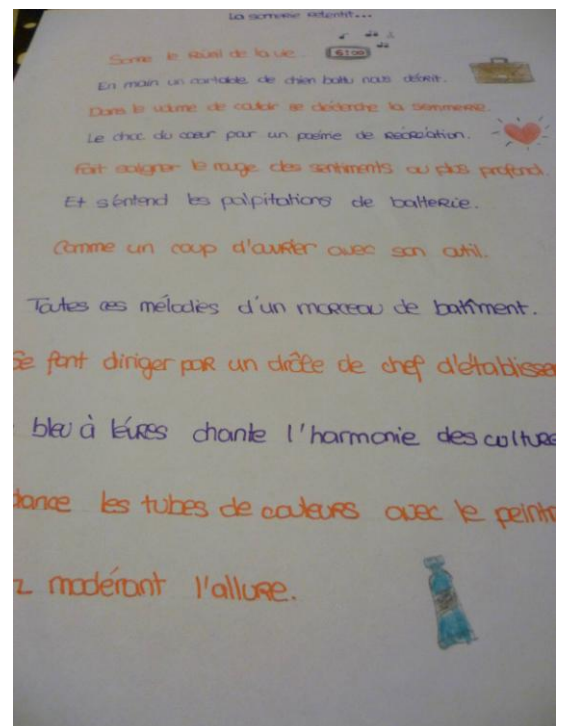 La sonnerie retentit...
Sonne le réveil de la vie.
6:00
En main un cartable de chien battu nous décrit.
Dans le volume de couloir se déclenche la sonnerie.
Le choc du cœur par un poème de récréation.
Fait saigner le rouge des sentiments au plus profond.
Et s'entend les palpitations de batterie.
Comme un coup d'ouvrier avec son outil.
Toutes ces mélodies d'un morceau de batîment.
Se font diriger par un drôle de chef d'établisse
bleu à lèvres chante l'harmonie des culture
dance les tubes de couleurs avec le peintr
z modérant l'allure.